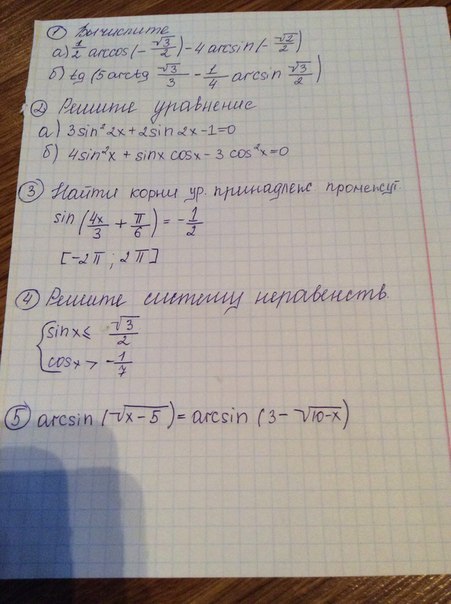 ① Вычислите
а) 1/2 arccos(-√3/2) - 4 arcsin(-√2/2)
б) tg(5 arctg √3/3 - 1/4 arcsin √3/2)
② Решите уравнение
а) 3sin²2x+2sin2x-1=0
б) 4sin²x+sinx cosx-3 cos²x=0
③ Найти корни ур. принадлеж промежут
sin(4x/3 + π/6) = -1/2
[-2π; 2π]
④ Решите систему неравенств
{sinx ≤ √3/2
cosx > -1/7
⑤ arcsin(√x-5) = arcsin(3-√10-x)